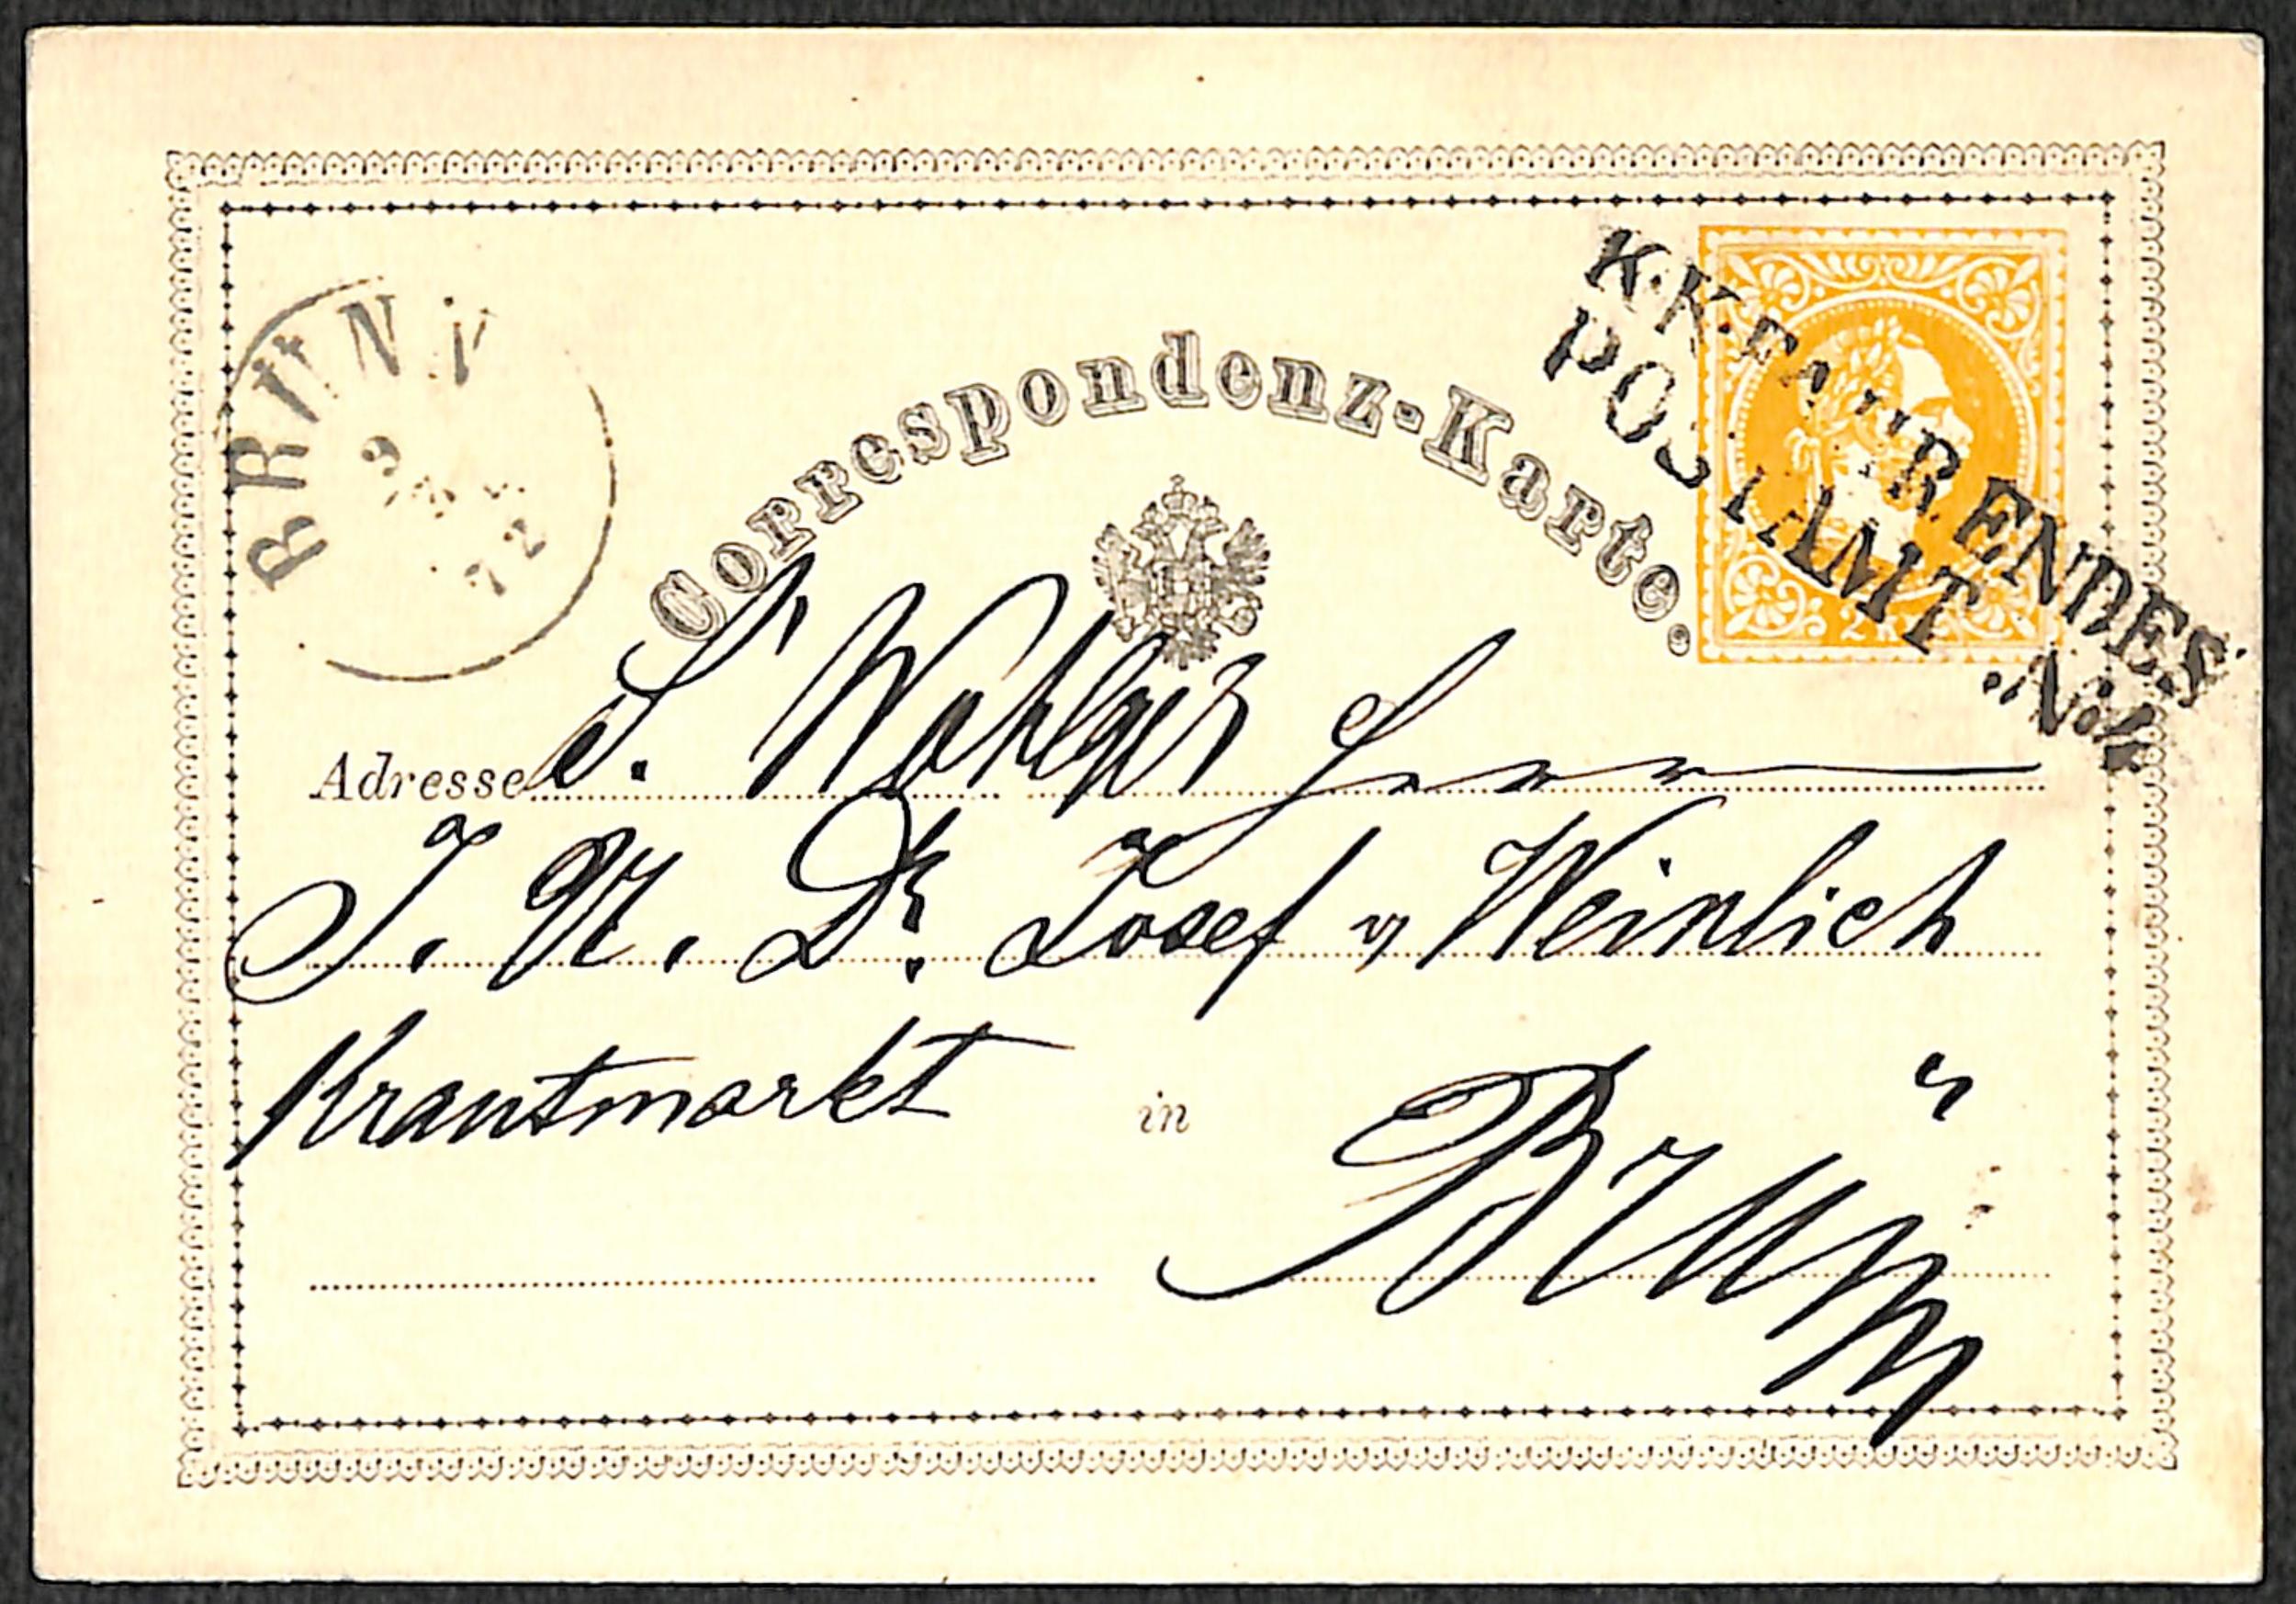 K.K.FAHRENDES
POSTAMT.No:4
BRÜNN
9
72
Correspondenz-Karte.
2 KR
Adresse S. Wohlgeb Herrn
J. U. Dr. Josef v Weinlich
Krautmarkt in Brünn